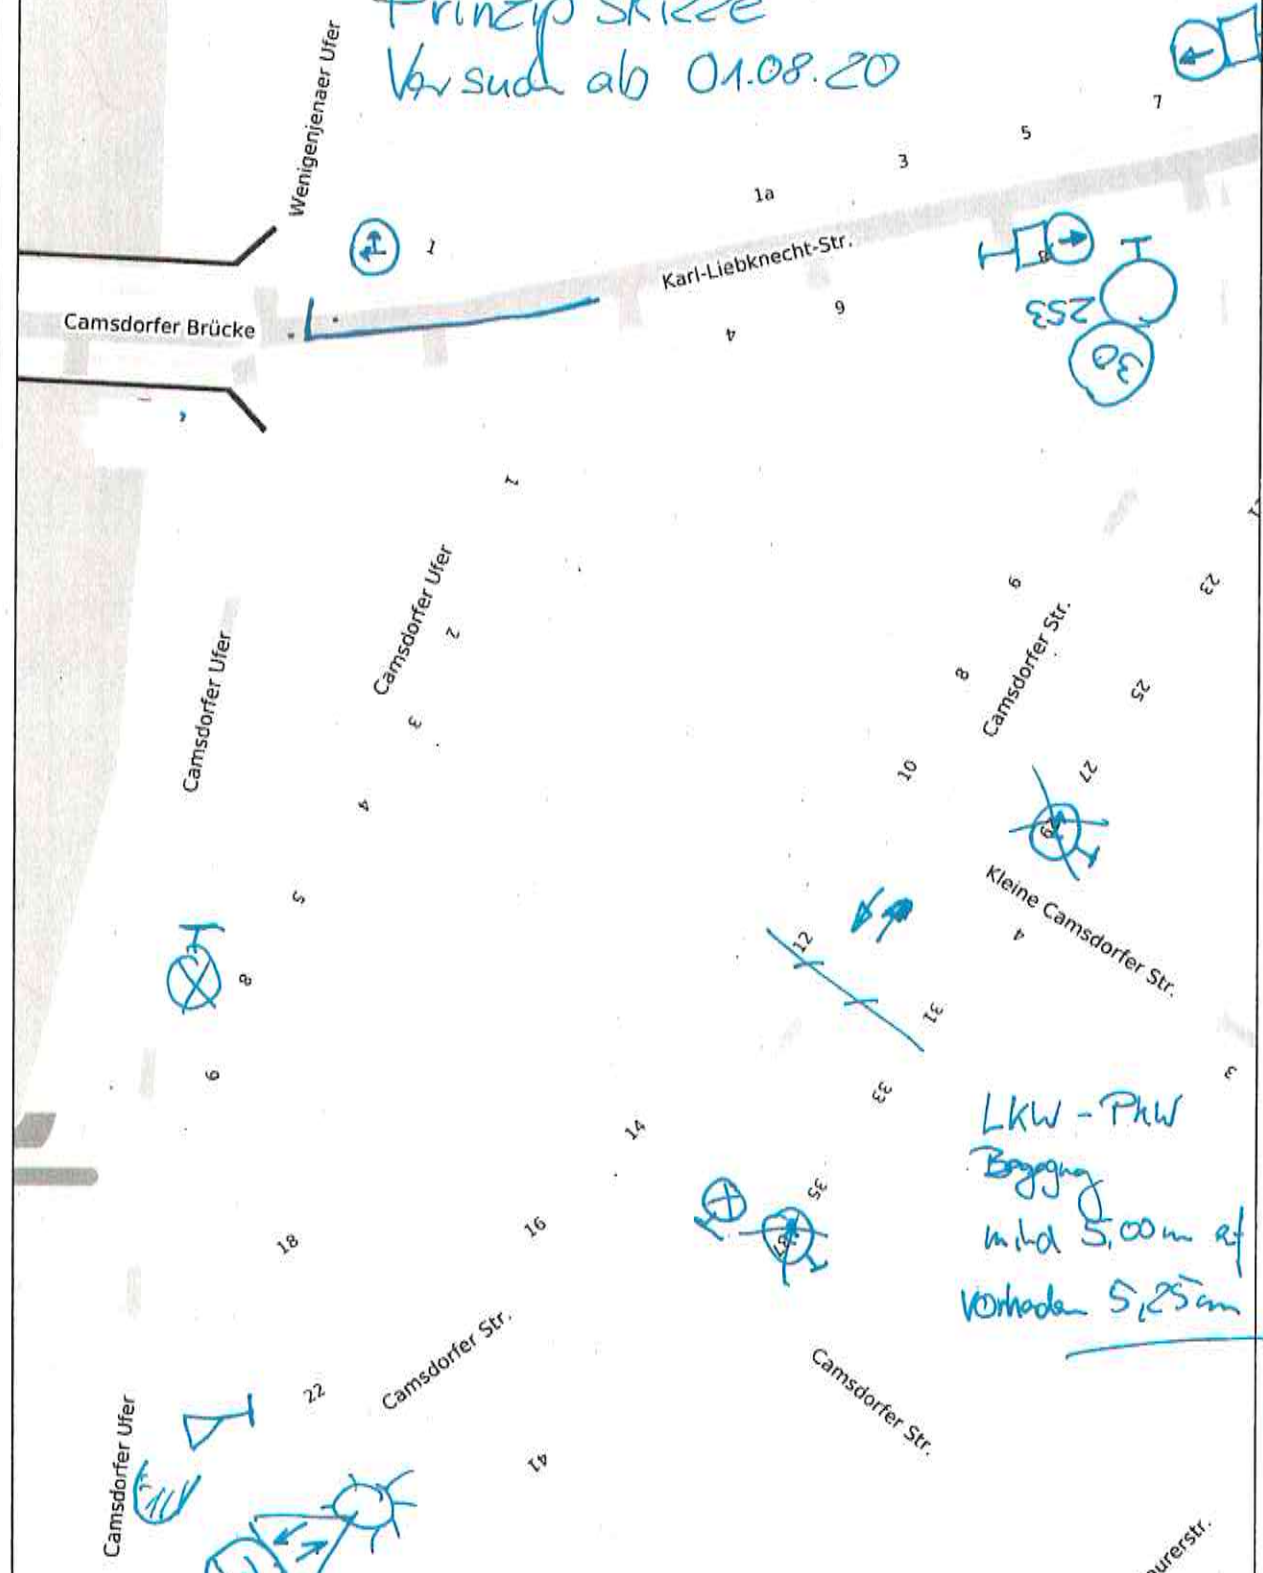 Prinzip Skizze
Versuch ab 01.08.20
Wenigenjenaer Ufer
7
5
3
1a
1
Karl-Liebknecht-Str.
8
Camsdorfer Brücke
6
4
253
30
1
Camsdorfer Ufer
2
3
4
Camsdorfer Ufer
5
8
6
21
23
6
Camsdorfer Str.
8
25
10
27
29
Kleine Camsdorfer Str.
4
12
31
3
33
LKW - PKW
Begegnung
mind 5,00m
vorhanden 5,25m
14
35
37
16
18
Camsdorfer Str.
22
Camsdorfer Str.
41
Camsdorfer Ufer
urerstr.